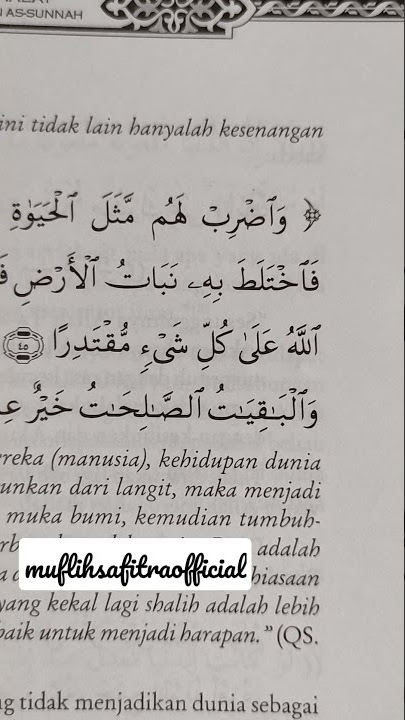 AS-SUNNAH
ini tidak lain hanyalah kesenangan
﴿ وَٱضْرِبْ لَهُم مَّثَلَ ٱلْحَيَوٰةِ
فَٱخْتَلَطَ بِهِۦ نَبَاتُ ٱلْأَرْضِ
ٱللَّهُ عَلَىٰ كُلِّ شَىْءٍ مُّقْتَدِرًا ٤٥
وَٱلْبَـٰقِيَـٰتُ ٱلصَّـٰلِحَـٰتُ خَيْرٌ
(manusia), kehidupan dunia
dari langit, maka menjadi
muka bumi, kemudian tumbuh-
adalah
muflihsafitraofficial
yang kekal lagi shalih adalah lebih
baik untuk menjadi harapan.” (QS.
tidak menjadikan dunia sebagai